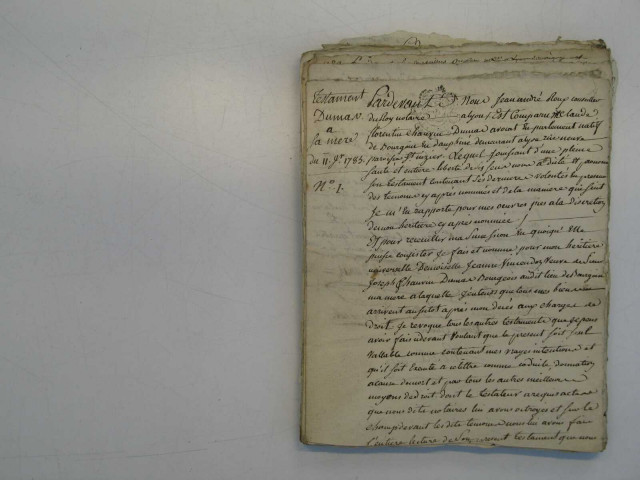 Testament
Dumas
a
sa mere
du 11 9.bre 1785.
N.o 1.
Pardevant Nous Jean andré Roux conseiller
du Roy notaire a Lyon est comparu M.e claude
florentin chauvin Dumas avocat au parlement natif
de Bourgoin en dauphiné demeurant a Lyon rue neuve
paroisse St nizier Lequel jouissant d'une pleine
santé et entiere liberté de
son testament contenant ses dernieres volontés en presence
des temoins cy après nommés et de la maniere qui suit
Je m'en rapporte pour mes oeuvres pies a la discretion
de mon heritiere cy après nommée
Et pour recueillir ma succession en quoiqu'elle
puisse consister Je fais et nomme pour mon heritiere
universelle Demoiselle Jeanne Vincendon veuve de Sieur
Joseph chauvin Dumas Bourgeois audit lieu de Bourgoin
ma mere a laquelle J'entends que tous mes biens
arrivent aussitot après mon decès aux charges de
droit. Je revoque tous les autres testaments que je peux
avoir fait devant voulant que le present soit seul
vallable comme contenant mes vrayes intentions et
qu'il soit executé a ce titre comme codicile donnation
a cause de mort et par tous les autres meilleurs
moyens de droit dont le testateur a requis acte
que nous dits notaires lui avons octroyé et
les dits temoins lui avoir fait
l'entiere lecture de son present testament que nous